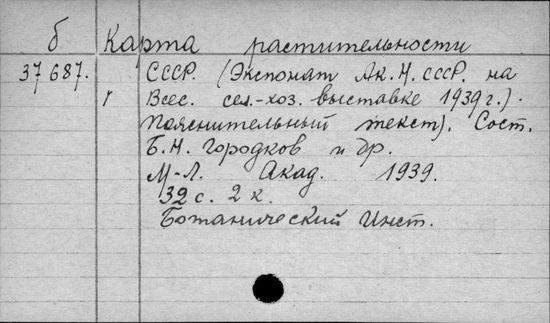 б Карта растительности
37 687. СССР. (Экспонат Ак. Н. СССР. на
г Всес. сел.-хоз. выставке 1939 г.).
Пояснительный текст). Сост.
Б. Н. Городков и др.
М-Л. Акад. 1939.
32 с. 2 к.
Ботанический Инст.